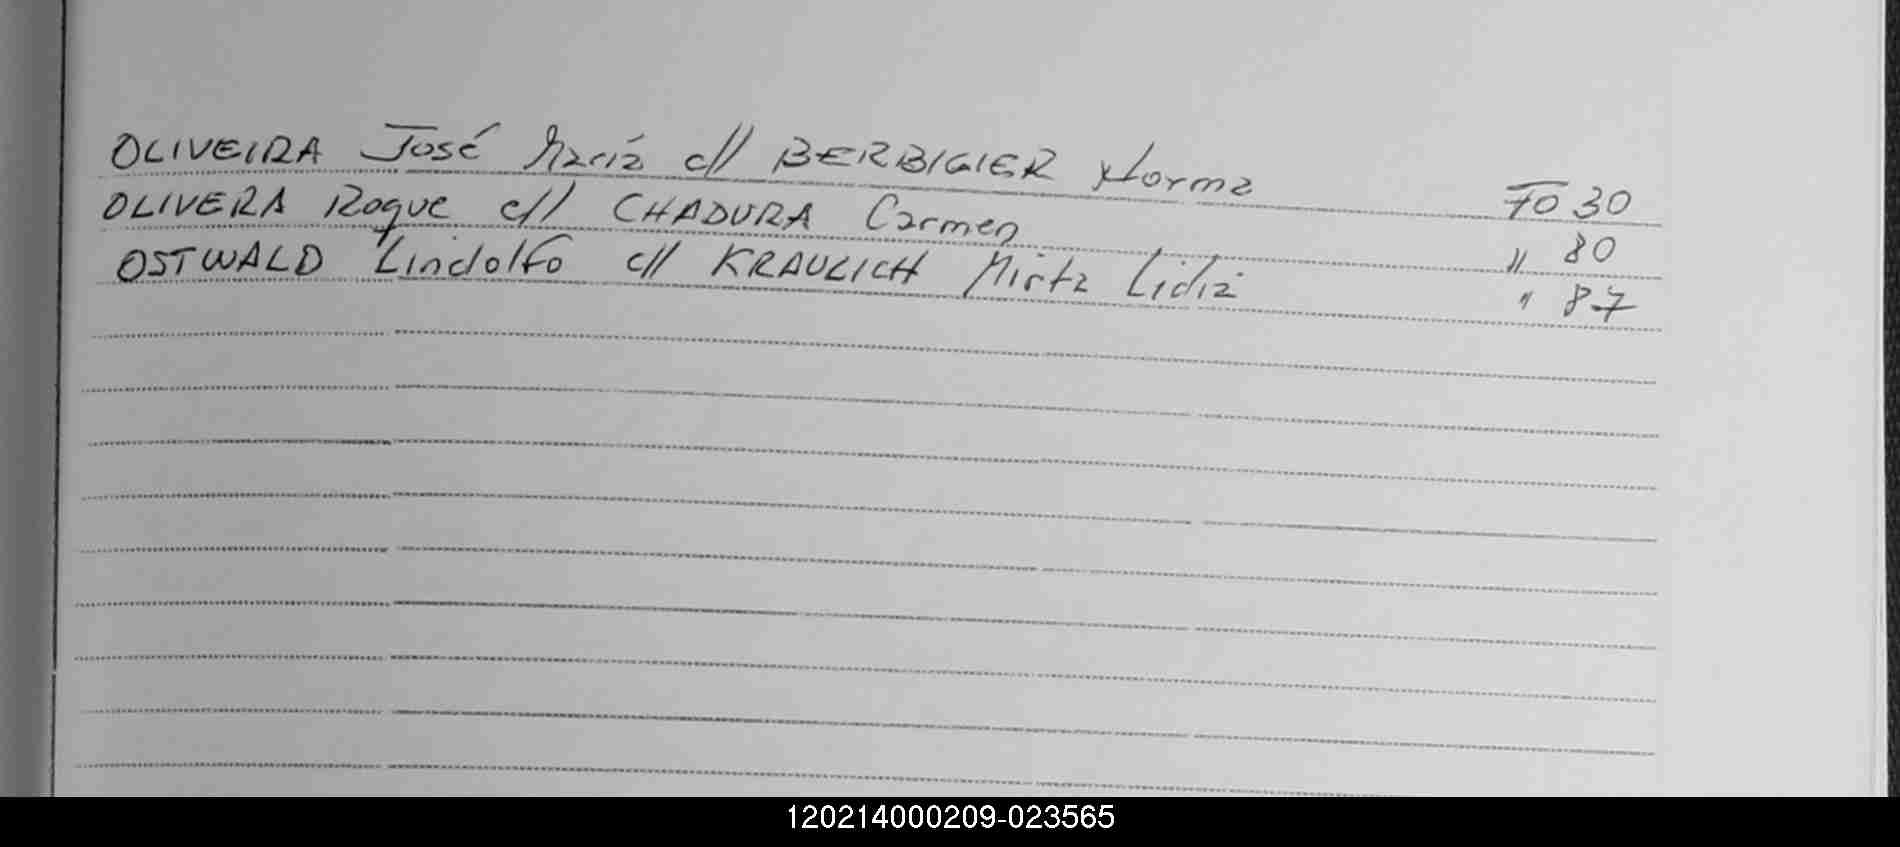 OLIVEIRA José María c// BERBIGIER Norma Fo 30
OLIVERA Roque c// CHADURA Carmen " 80
OSTWALD Lindolfo c// KRAULICH Mirta Lidia " 87
120214000209-023565